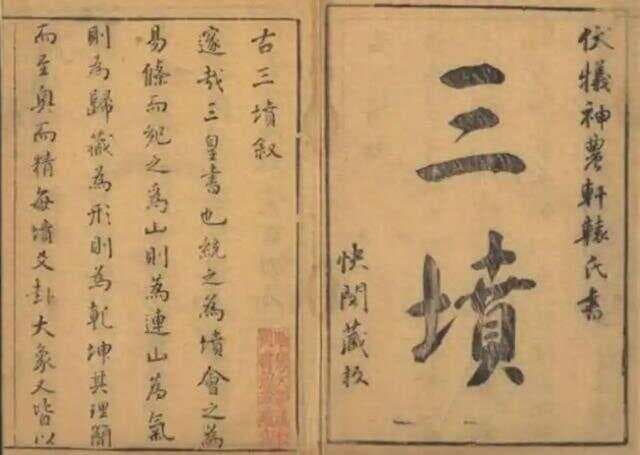 伏犧神農軒轅氏書
三墳
快閣藏板
古三墳叙
邃哉三皇書也統之為墳會之為
易條而紀之為山則為連山為氣
則為歸藏為形則為乾坤其理簡
而至奧而精每墳爻卦大象又皆以